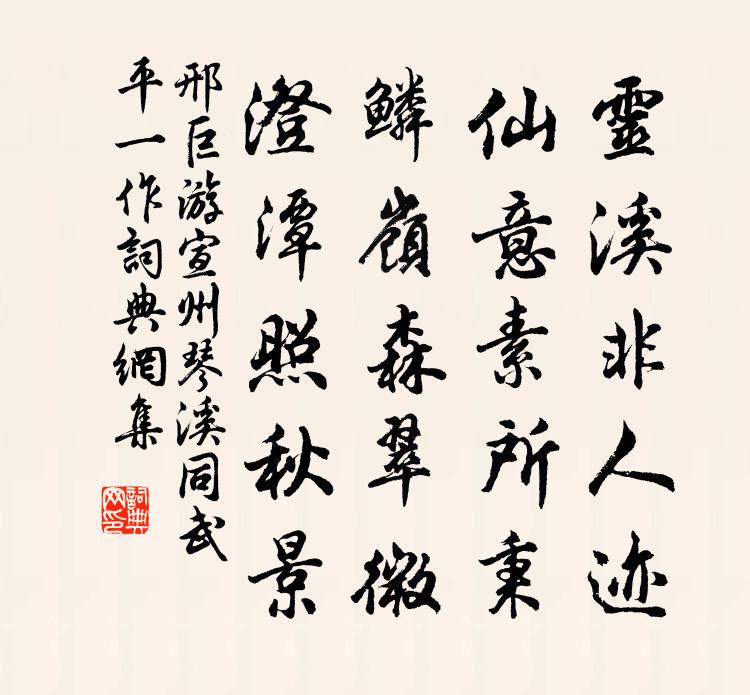 靈溪非人迹
仙意素所秉
鱗嶺森翠微
澄潭照秋景
邢巨游宣州琴溪同武
平一作詞典網集
詞典網印